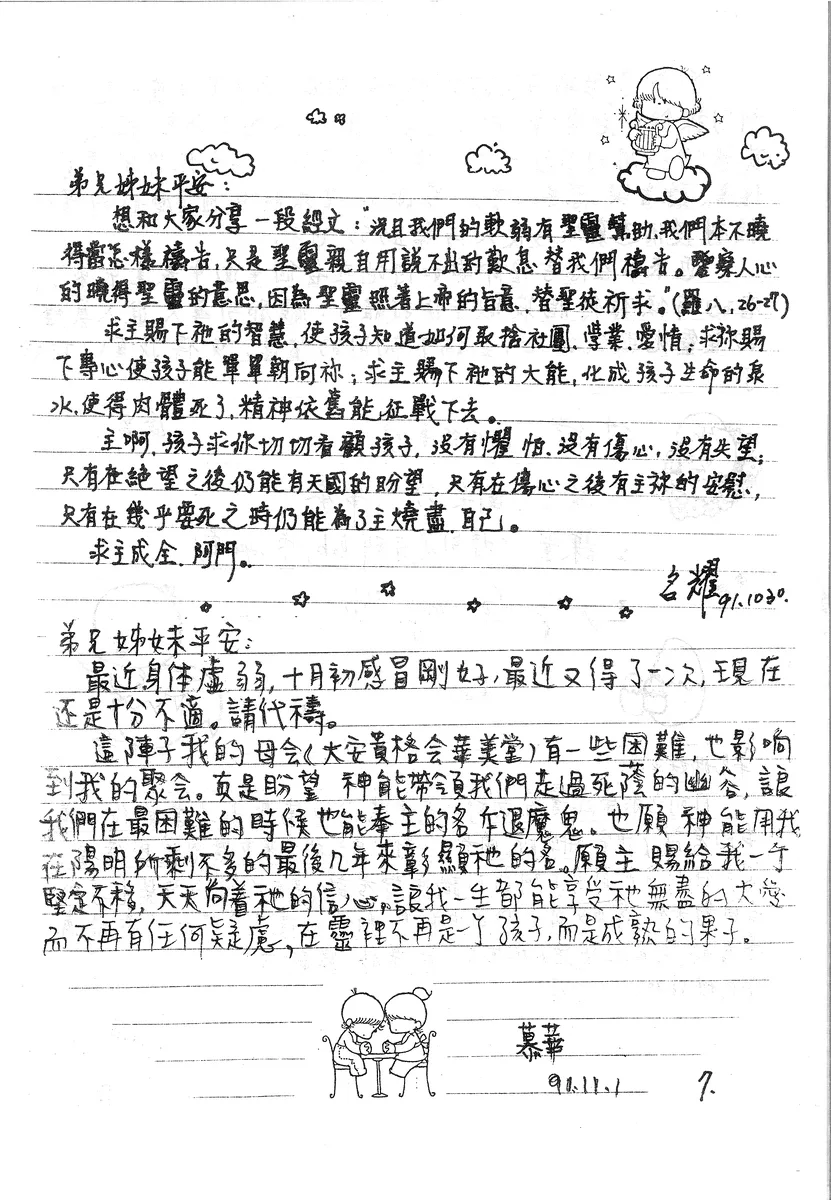 弟兄姊妹平安：
想和大家分享一段經文："況且我們的軟弱有聖靈幫助、我們本不曉
得當怎樣禱告，只是聖靈親自用說不出的歎息、替我們禱告。鑒察人心
的曉得聖靈的意思，因為聖靈照著上帝的旨意、替聖徒祈求。"(羅八,26-27)
求主賜下祂的智慧，使孩子知道如何取捨社團、學業、愛情；求祢賜
下專心使孩子能單單朝向祢；求主賜下祂的大能，化成孩子生命的泉
水，使得肉體死了，精神依舊能征戰下去。
主啊，孩子求你切切看顧孩子，沒有懼怕、沒有傷心，沒有失望；
只有在絕望之後仍能有天國的盼望，只有在傷心之後有主祢的安慰，
只有在幾乎要死之時仍能為了主燒盡自己。
求主成全、阿門。
名耀
91.10.30.
弟兄姊妹平安：
最近身体虛弱，十月初感冒剛好，最近又得了一次，現在
还是十分不適。請代禱。
這陣子我的母会(大安貴格会華美堂)有一些困難，也影响
到我的聚会。真是盼望 神能帶領我們走過死蔭的幽谷，讓
我們在最困難的時候也能奉主的名斥退魔鬼。也願 神能用我
在陽明所剩不多的最後几年來彰顯祂的名。願主賜給我一个
堅定不移，天天向着祂的信心，讓我一生都能享受祂無盡的大愛
而不再有任何疑慮，在靈裡不再是一个孩子，而是成熟的果子。
慕華
91.11.1
7.